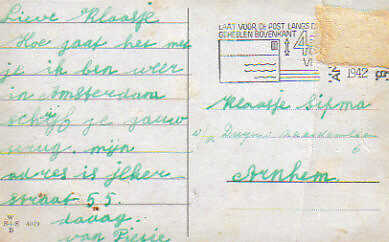 Lieve Klaasje
Hoe gaat het met
je ik ben weer
in Amsterdam
schrijf je gauw
trug. mijn
adres is
straat 55.
daaag.
van Piesie
LAAT VOOR DE POST LANGS D
GEHEELEN BOVENKANT
1942
Klaasje Sipma
Arnhem.